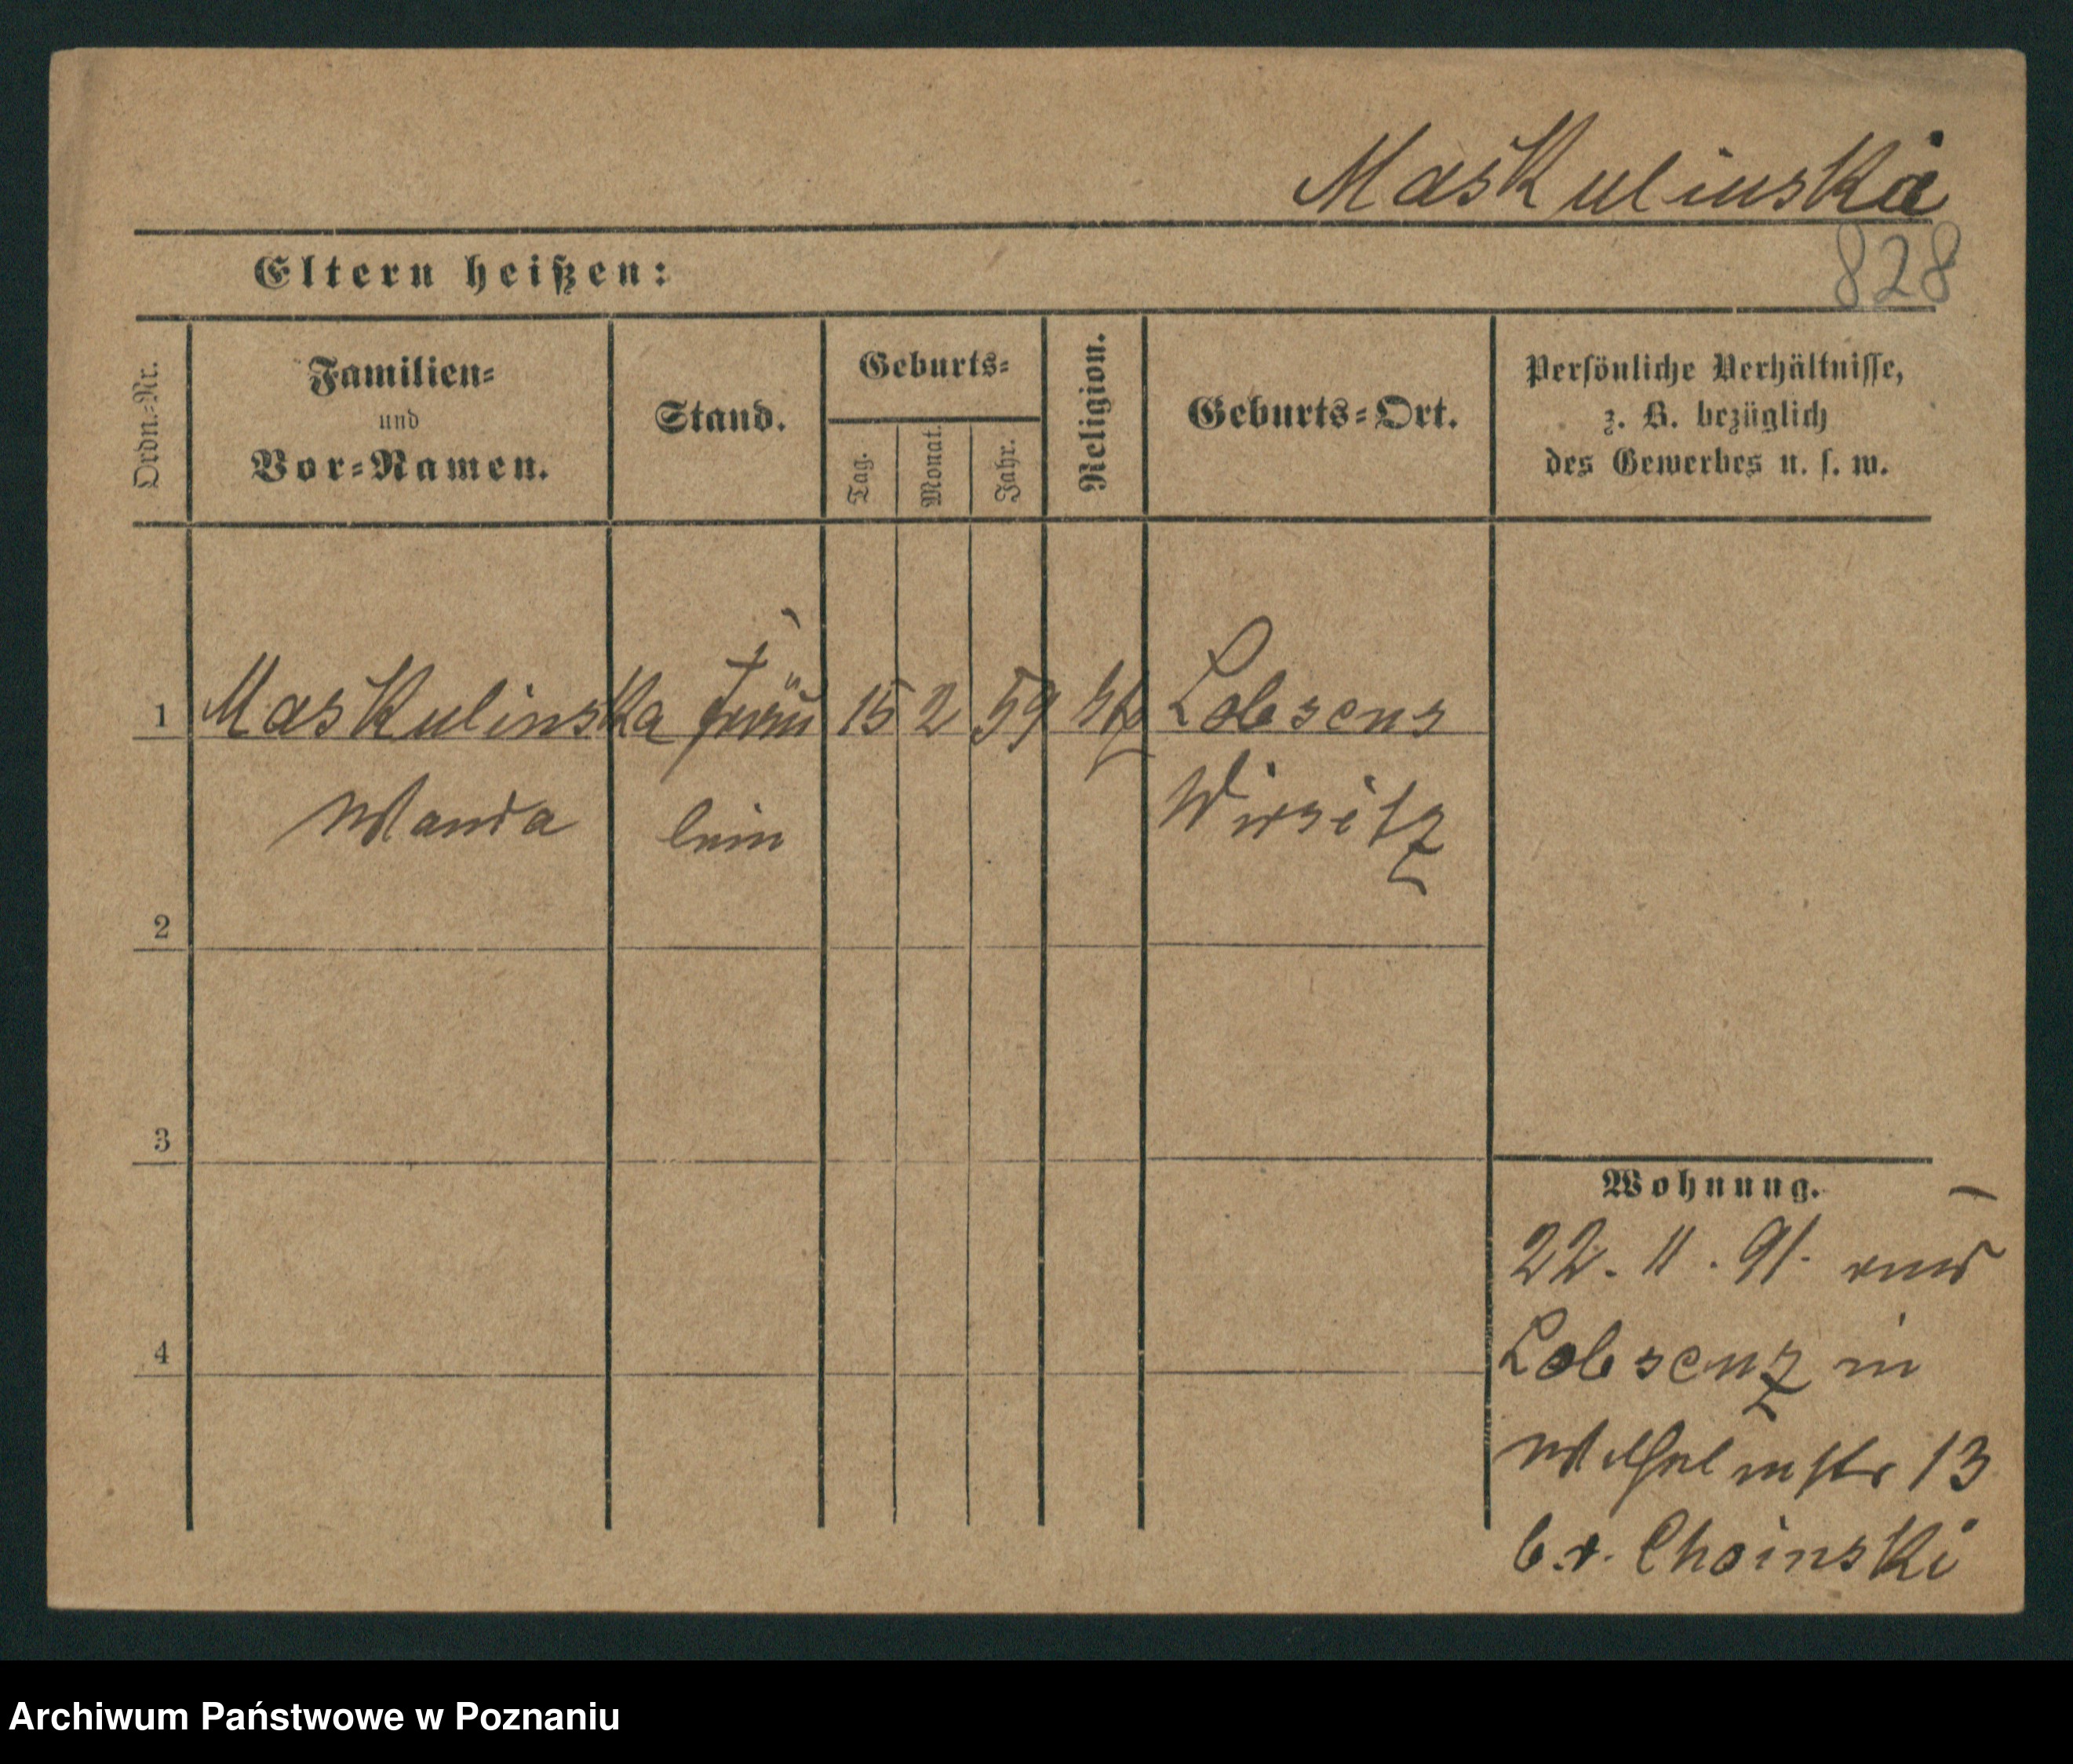 Maskulinska
828
Eltern heißen:
Ordn.-Nr.
Familien-
und
Vor-Namen.
Stand.
Geburts-
Tag.
Monat.
Jahr.
Religion.
Geburts-Ort.
Persönliche Verhältnisse,
z. B. bezüglich
des Gewerbes u. s. w.
1 Maskulinska Fräu 15 2 59 kth Lobsens
Wanda lein Wirsitz
2
3
4
Wohnung.
22. 11. 91. aus
Lobsenz in
Wilhelmstr 13
b. Choinski
Archiwum Państwowe w Poznaniu